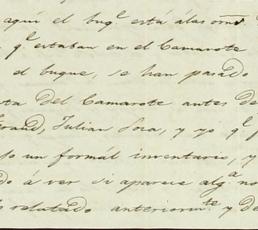 aquí el buq.e está á las orns
q.e estaban en el Camarote
el buque, se han pasado
ta del Camarote antes de
Julian Sosa, y yo q.e
un formál inventario, y
do á ver si aparece alg.a no
relatado anteriorm.te y de